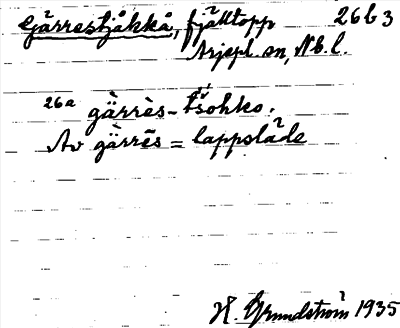 Gärrestjåkkå, fjälltopp 26 b 3
Arjepl. sn, Nb. l.
26a gä̀rrès-tsohko.
Av gä̀rrēs = lappsläde
H. Grundström 1935